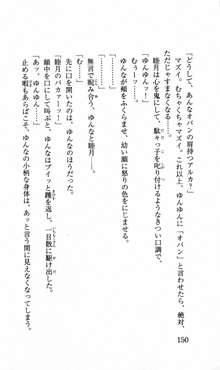 「どうして、あんなオバンの肩持つアルカ？」
マズイ。むちゃくちゃマズイ。これ以上、ゆんゆんに「オバン」と言わせたら、絶対、
ただじゃすまなくなる……。
睦月は心を鬼にして、駄々っ子を叱り付けるようなきつい口調で、
むぅーっ……。
ゆんなが頬をふくらませ、幼い顔に怒りの色をにじませる。
むぅ……。
無言で睨み合う、ゆんなと睦月——。
先に口を開いたのは、ゆんなのほうだった。
「睦月のバカァーッ！」
顔中を口にして叫ぶと、ゆんなはプイッと踵を返し、一目散に駆け出した。
「あっ。ゆんゆん……！」
止める暇もあらばこそ、ゆんなの小柄な身体は、あっと言う間に見えなくなってしまう。
150